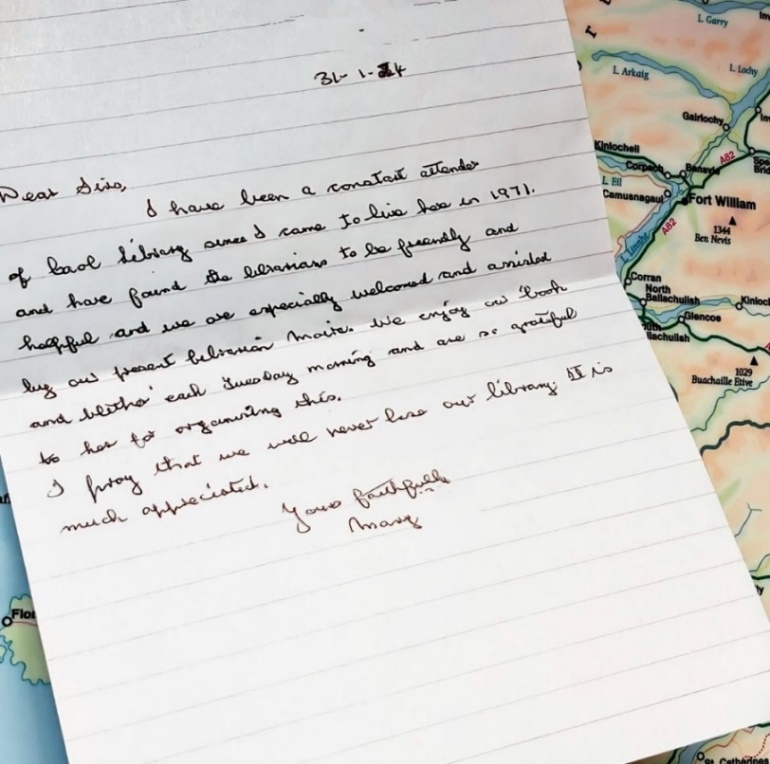 31-1-24
Dear Sirs,
I have been a constant attender
of Caol Library since I came to live here in 1971.
and have found the librarians to be friendly and
helpful and we are especially welcomed and assisted
by our present librarian Maite. We enjoy our 'book
and blether' each Tuesday morning and are so grateful
to her for organising this.
I pray that we will never lose our library. It is
much appreciated.
Yours faithfully
Mary
L. Garry
L. Arkaig
L. Lochy
Gairlochy
Kinlocheil
A82
Corpach
Banavie
L. Eil
Camusnagaul
Fort William
1344
Ben Nevis
A82
L. Linnhe
Corran
North
Ballachulish
Glencoe
1029
Buachaille Etive
St. Catherines